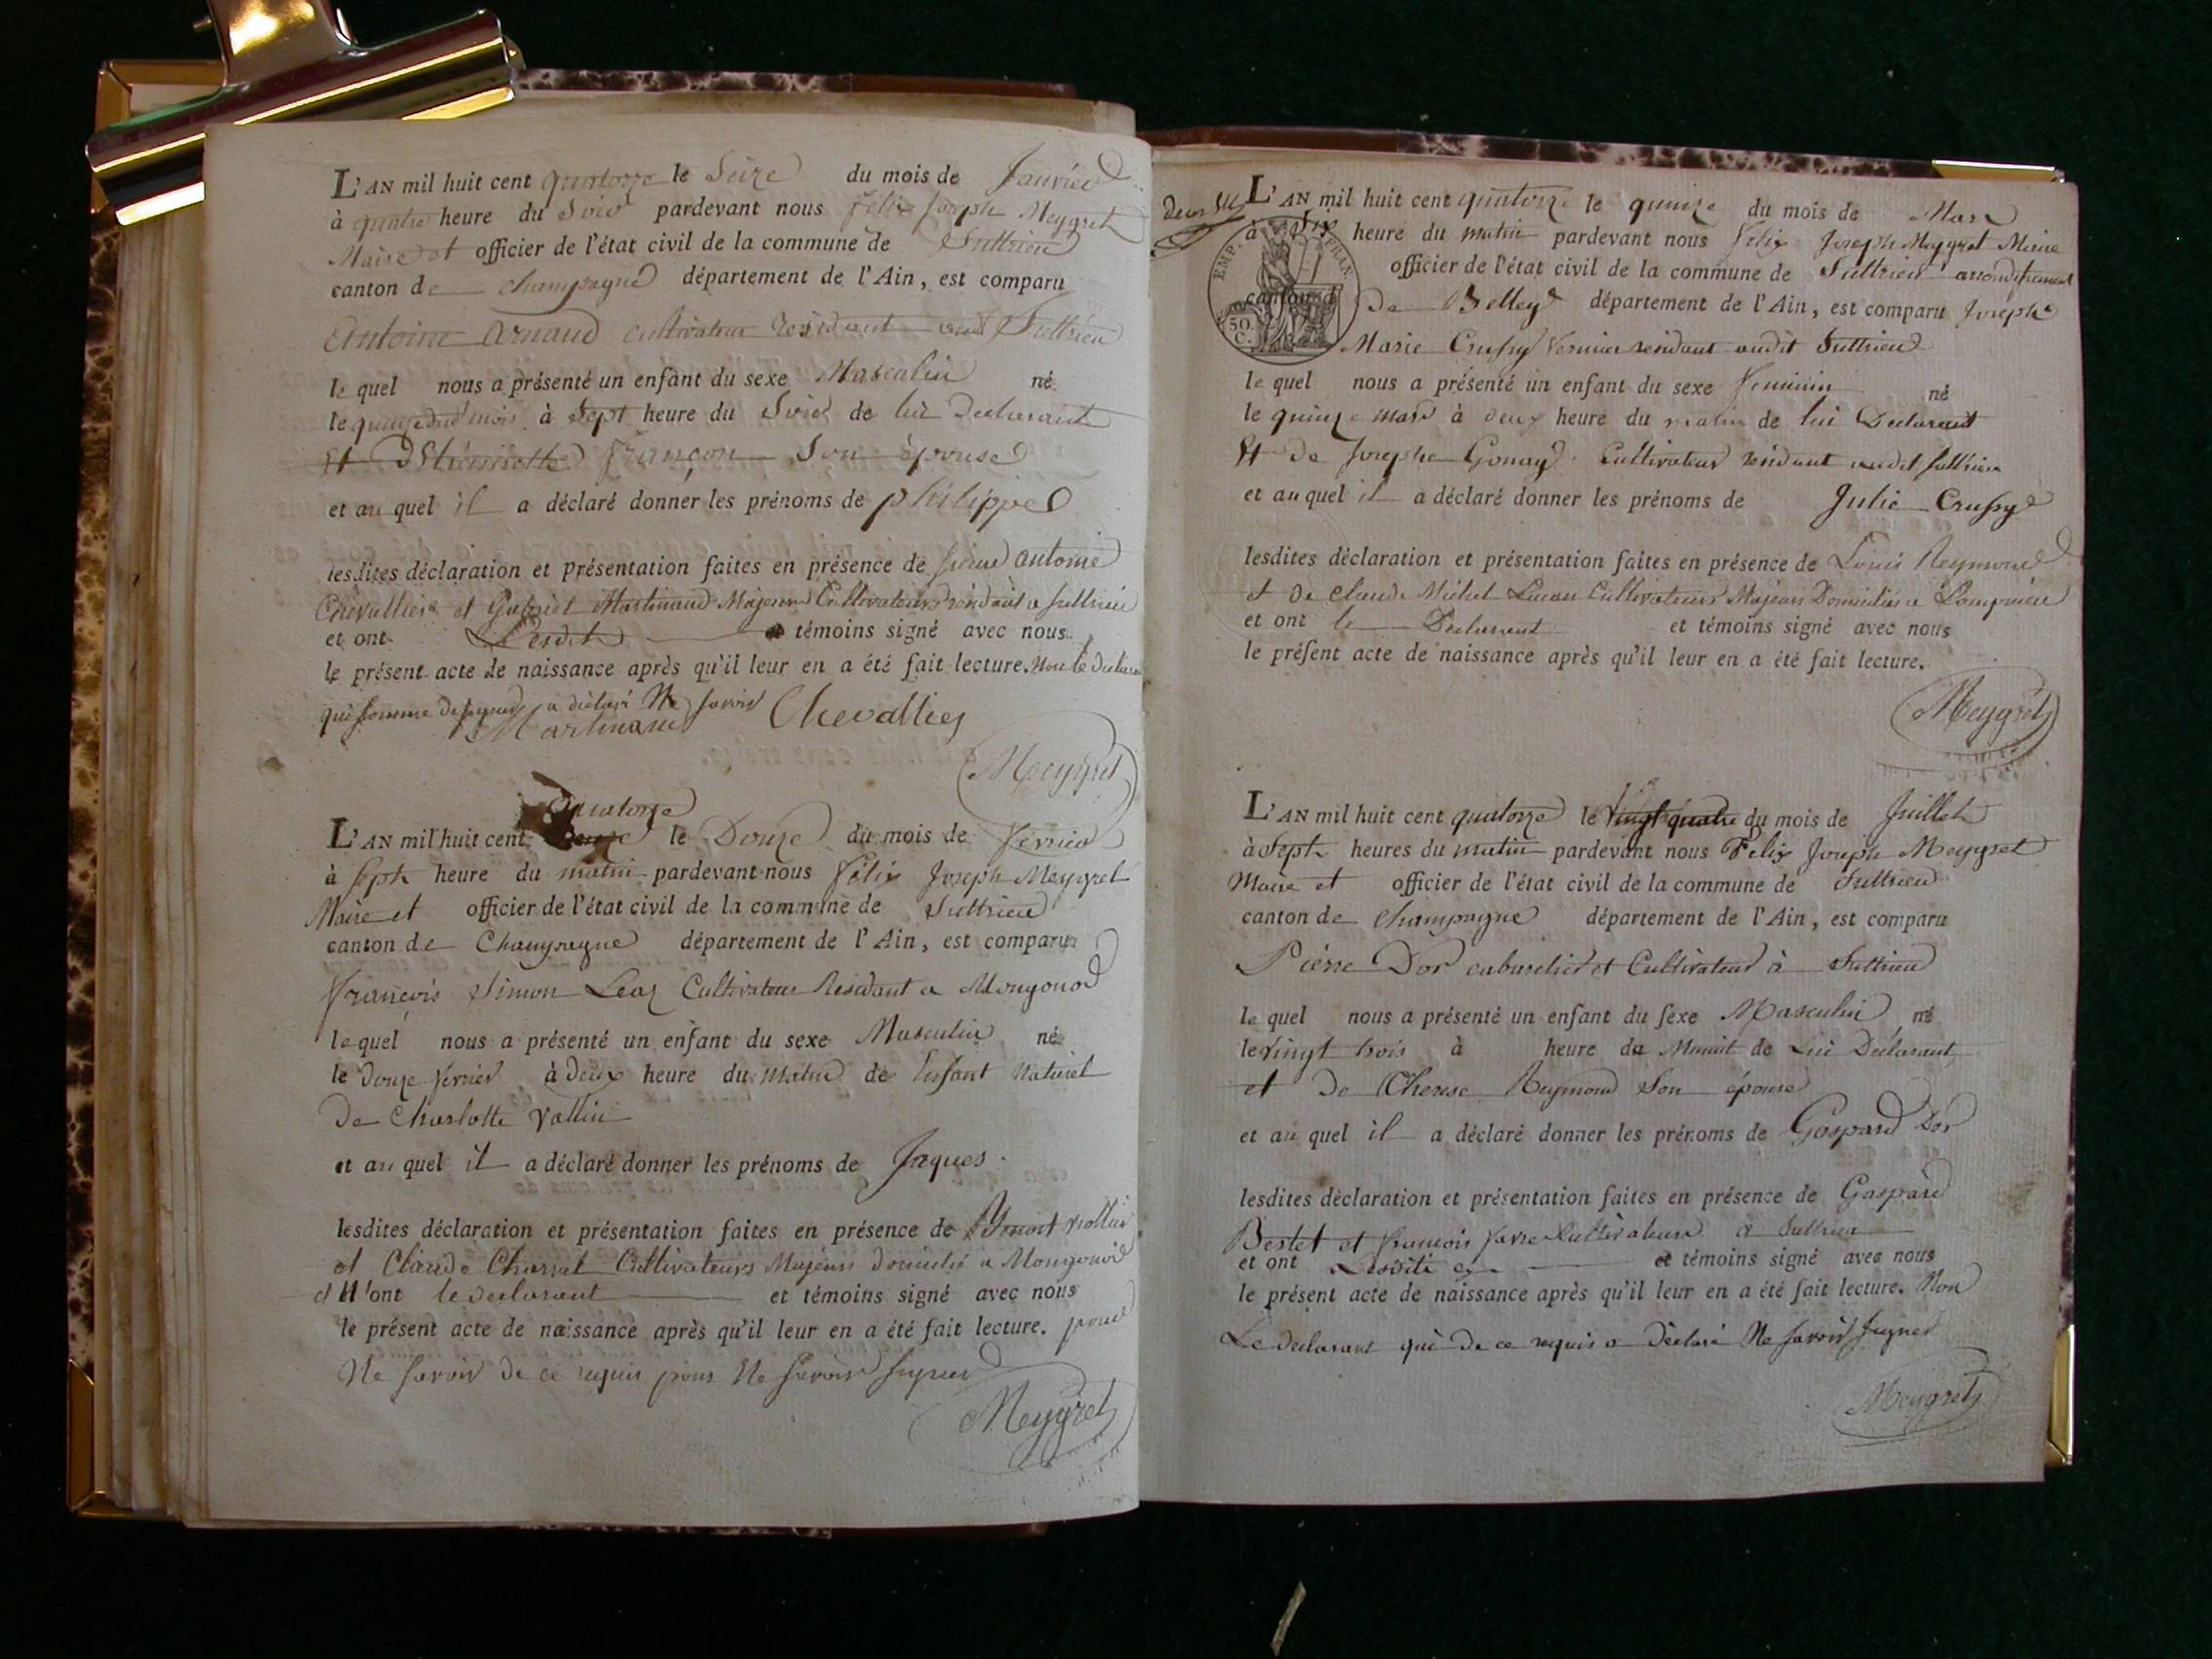 L'AN mil huit cent quatorze le Seize du mois de Janvier
à quatre heure du Soir pardevant nous felix Joseph Meygret
Maire et officier de l'état civil de la commune de Suttrieu
canton de champagne département de l'Ain, est comparu
Antoine Arnaud cultivateur residant audt Suttrieu
le quel nous a présenté un enfant du sexe Masculin né
le quinze dud mois à Sept heure du Soir de lui Declarant
Et françon Son épouse
et au quel il a déclaré donner les prénoms de philippe
lesdites déclaration et présentation faites en présence de antoine
Chevallier et Gabriel Martinand Majeurs Cultivateurs residant a Suttrieu
et ont Lesdit témoins signé avec nous
le présent acte de naissance après qu'il leur en a été fait lecture. Non le declarant
a déclaré Ne savoir
Martinand Chevallier
Meygret
quatorze
L'AN mil huit cent le Douze du mois de fevrier
à sept heure du matin pardevant nous félix Joseph Meygret
Maire et officier de l'état civil de la commune de Suttrieu
canton de Champagne département de l'Ain, est comparu
françois Simon Cultivateur Residant a Mongonod
le quel nous a présenté un enfant du sexe Masculin né
le douze fevrier à deux heure du matin de Enfant Naturel
de Charlotte vallin
et au quel il a déclaré donner les prénoms de Jaques.
lesdites déclaration et présentation faites en présence de Benoit
et Claude Charvet Cultivateurs Majeurs domicilié a Mongonod
et N'ont le declarant et témoins signé avec nous
le présent acte de naissance après qu'il leur en a été fait lecture. pour
Ne savoir de ce requis pour Ne savoir signer
Meygret
L'AN mil huit cent quatorze le quinze du mois de Mars
à Six heure du matin pardevant nous félix Joseph Meygret Maire
EMP. FRAN
officier de l'état civil de la commune de Suttrieu arrondissement
canton d de Belley département de l'Ain, est comparu Joseph
50. C.
Marie Crussy residant audit Suttrieu
le quel nous a présenté un enfant du sexe feminin né
le quinze mars à deux heure du matin de lui Declarant
Et de Josephe Gonay Cultivateur residant audit Suttrieu
et au quel il a déclaré donner les prénoms de Julie Crussy
lesdites déclaration et présentation faites en présence de Louis Reymond
et de claude Michel Cultivateurs Majeurs Domiciliés a
et ont le Declarant et témoins signé avec nous
le présent acte de naissance après qu'il leur en a été fait lecture.
Meygret
L'AN mil huit cent quatorze le vingt quatre du mois de Juillet
à Sept heures du matin pardevant nous Felix Joseph Meygret
Maire et officier de l'état civil de la commune de Suttrieu
canton de champagne département de l'Ain, est comparu
Pierre Dor cabaretier et Cultivateur à Suttrieu
le quel nous a présenté un enfant du sexe Masculin né
le vingt trois à heure de Minuit de Lui Déclarant
et de Therese Reymond Son épouse
et au quel il a déclaré donner les prénoms de Gaspard Dor
lesdites déclaration et présentation faites en présence de Gaspard
Berlet et francois favre Cultivateurs à Suttrieu
et ont Lesdits et témoins signé avec nous
le présent acte de naissance après qu'il leur en a été fait lecture. Non
Le declarant qui de ce requis a déclaré Ne savoir signer
Meygret